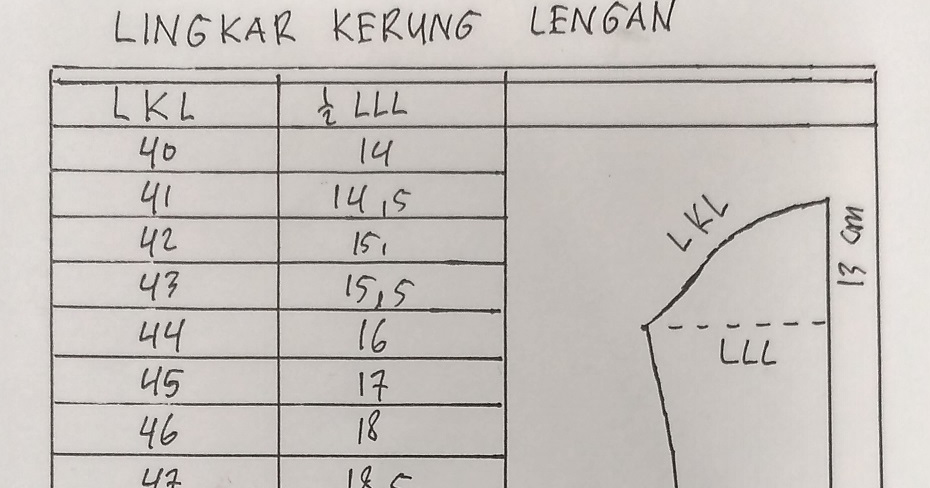 LINGKAR KERUNG LENGAN
LKL ½ LLL
40 14
41 14,5
42 15,
43 15,5
44 16
45 17
46 18
47 18,5
LKL
13 cm
LLL